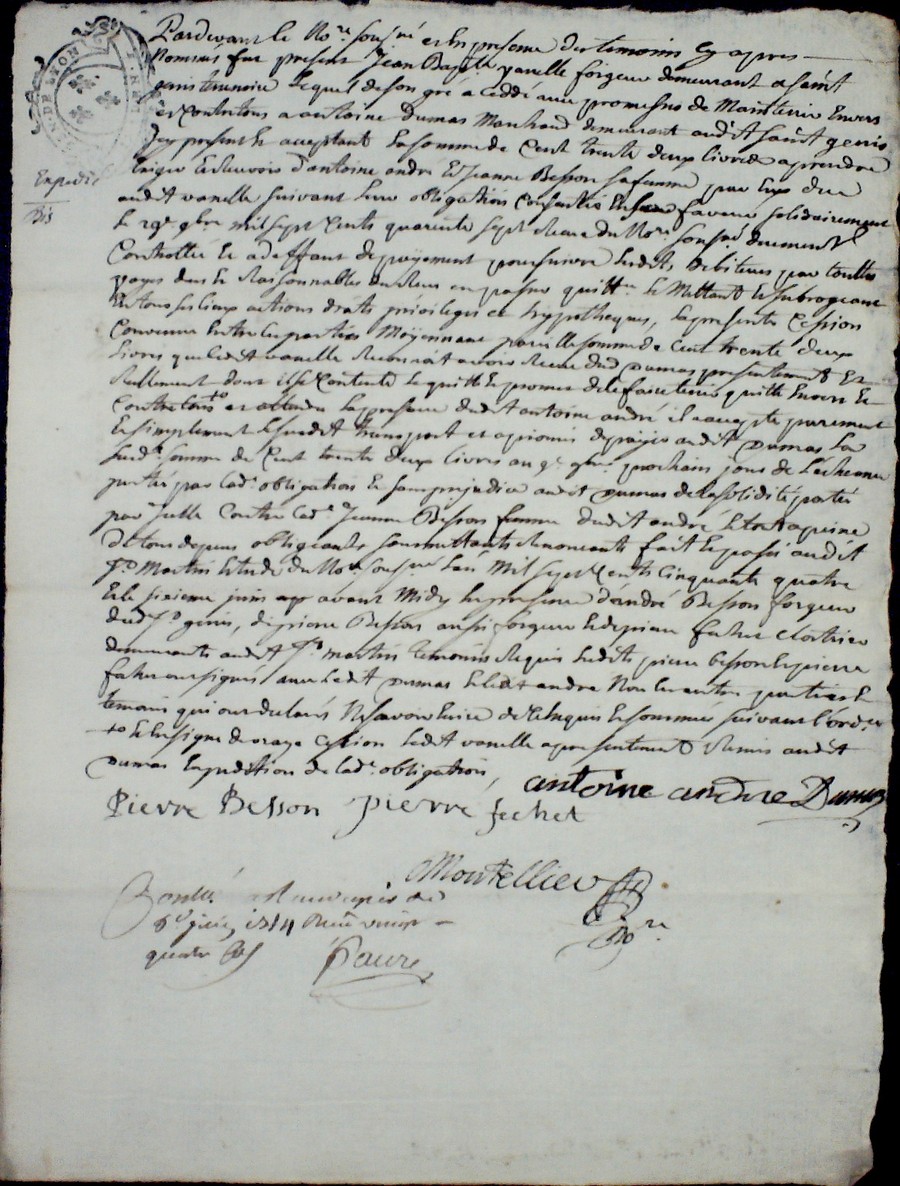 Pardevant le No.re sousné et En presence des temoins Cy apres
Nommés fut present Jean Bapt.te vanelle forgeur demeurant a saint
genis terrenoire Lequel de son gré a ceddé avec promesse de Maintenir Envers
et Contre tous a antoine Dumas Marchand demeurant audit saint genis
Icy present et acceptant La somme de Cent trente deux livres a prendre
Exiger et recevoir d'antoine andré Et Jeanne Besson sa femme par Eux due
audit vanelle suivant Leur obligation Consentie En sa faveur solidairement
Le 29e 9bre mil sept Cents quarente sept Receue du No.re sousné duement
Controllée Et a deffaut de payement poursuivre Lesdits debiteurs par touttes
voyes dues et Raisonnables du Receu en passer quitt.ce Le Mettant Et subrogeant
En tous ses lieux actions droits privileges et hypotheques, La presente Cession
Convenue Entre Les parties Moÿennant pareille somme de Cent trente deux
Livres que ledit vanelle Reconnoit avoir Receue dud Dumas presentement Et
Reellement dont il se Contente Le quitte Et promet de le faire tenir quitte Envers Et
Contre tous et attendu La presence dudit antoine andré il a accepté purement
Et simplement Le susdit transport et a promis de payer audit Dumas La
susd.e somme de Cent trente deux livres au 9e 9bre prochain jour de Lecheance
portée par Lad.e obligation Et sans prejudice audit Dumas de la solidité portée
par Icelle Contre Lad.e Jeanne Besson femme dudit andré Le tout a peine
de tous depens obligeants soumettants Renoncants fait Et passé audit
S.t Martin Etude du No.re sousné Lan Mil sept Cents Cinquante quatre
Et le sixieme juin avant Midy En presence d'andré Besson forgeur
dud S.t genis, de pierre Besson aussi forgeur Et de pierre
demeurants audit S.t martin temoins Requis Lesdits pierre besson Et pierre
ont signés avec Ledit Dumas Et ledit andré Non Les autres parties Et
temoin qui ont declarés Ne savoir Ecrire de ce Enquis Et sommés suivant l'ord.ce
Cession Ledit vanelle a presentement Remis audit
Dumas Expedition de Lad.e obligation,
Expedié
antoine andre Dumas
Pierre Besson pierre fechet
Montellier
No.re
Conllé a Rivedegier le
6e juin 1754 Receu vingt
quatre sols
Faure